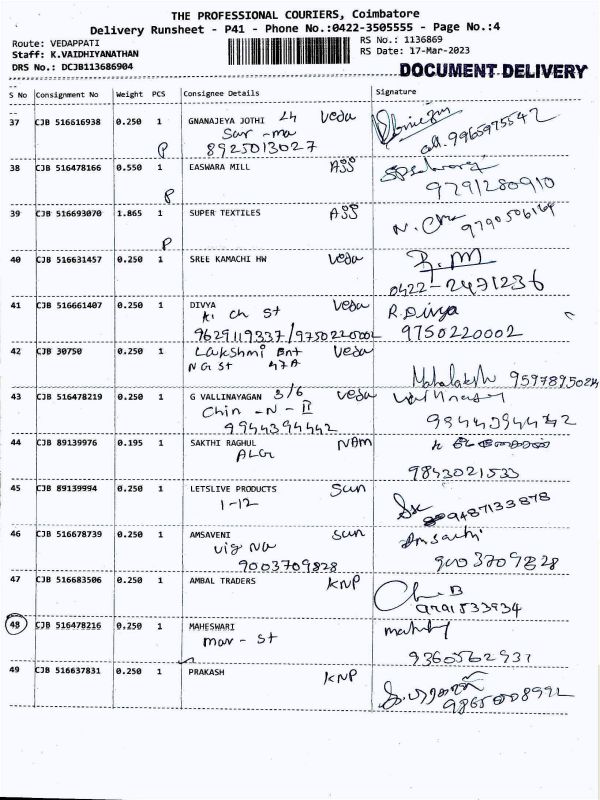 THE PROFESSIONAL COURIERS, Coimbatore
Delivery Runsheet - P41 - Phone No.:0422-3505555 - Page No.:4
Route: VEDAPPATI
RS No.: 1136869
Staff: K.VAIDHIYANATHAN
RS Date: 17-Mar-2023
DRS No.: DCJB113686904
DOCUMENT DELIVERY
S No Consignment No Weight PCS Consignee Details Signature
37 CJB 516616938 0.250 1 GNANAJEYA JOTHI 24 Veda
8925013027 9965975542
P
38 CJB 516478166 0.550 1 EASWARA MILL
P 9791280910
39 CJB 516693070 1.865 1 SUPER TEXTILES
P
40 CJB 516631457 0.250 1 SREE KAMACHI HW Veda R.M
0422-2471236
41 CJB 516661407 0.250 1 DIVYA Veda R.Divya
Ki Ch St
9629119337/9750220002 9750220002
42 CJB 30750 0.250 1 Lakshmi Ent Veda
NG St 47A
43 CJB 516478219 0.250 1 G VALLINAYAGAN 3/6 Veda
Chin -N- II
9944394442 9944394442
44 CJB 89139976 0.195 1 SAKTHI RAGHUL NAM
ALG 9843021533
45 CJB 89139994 0.250 1 LETSLIVE PRODUCTS Sun
1-12 9487133878
46 CJB 516678739 0.250 1 AMSAVENI Sun
Vig Na
9003709828 9003709828
47 CJB 516683506 0.250 1 AMBAL TRADERS KNP
9791533934
48 CJB 516478216 0.250 1 MAHESWARI
mar - St 9360562931
49 CJB 516637831 0.250 1 PRAKASH KNP